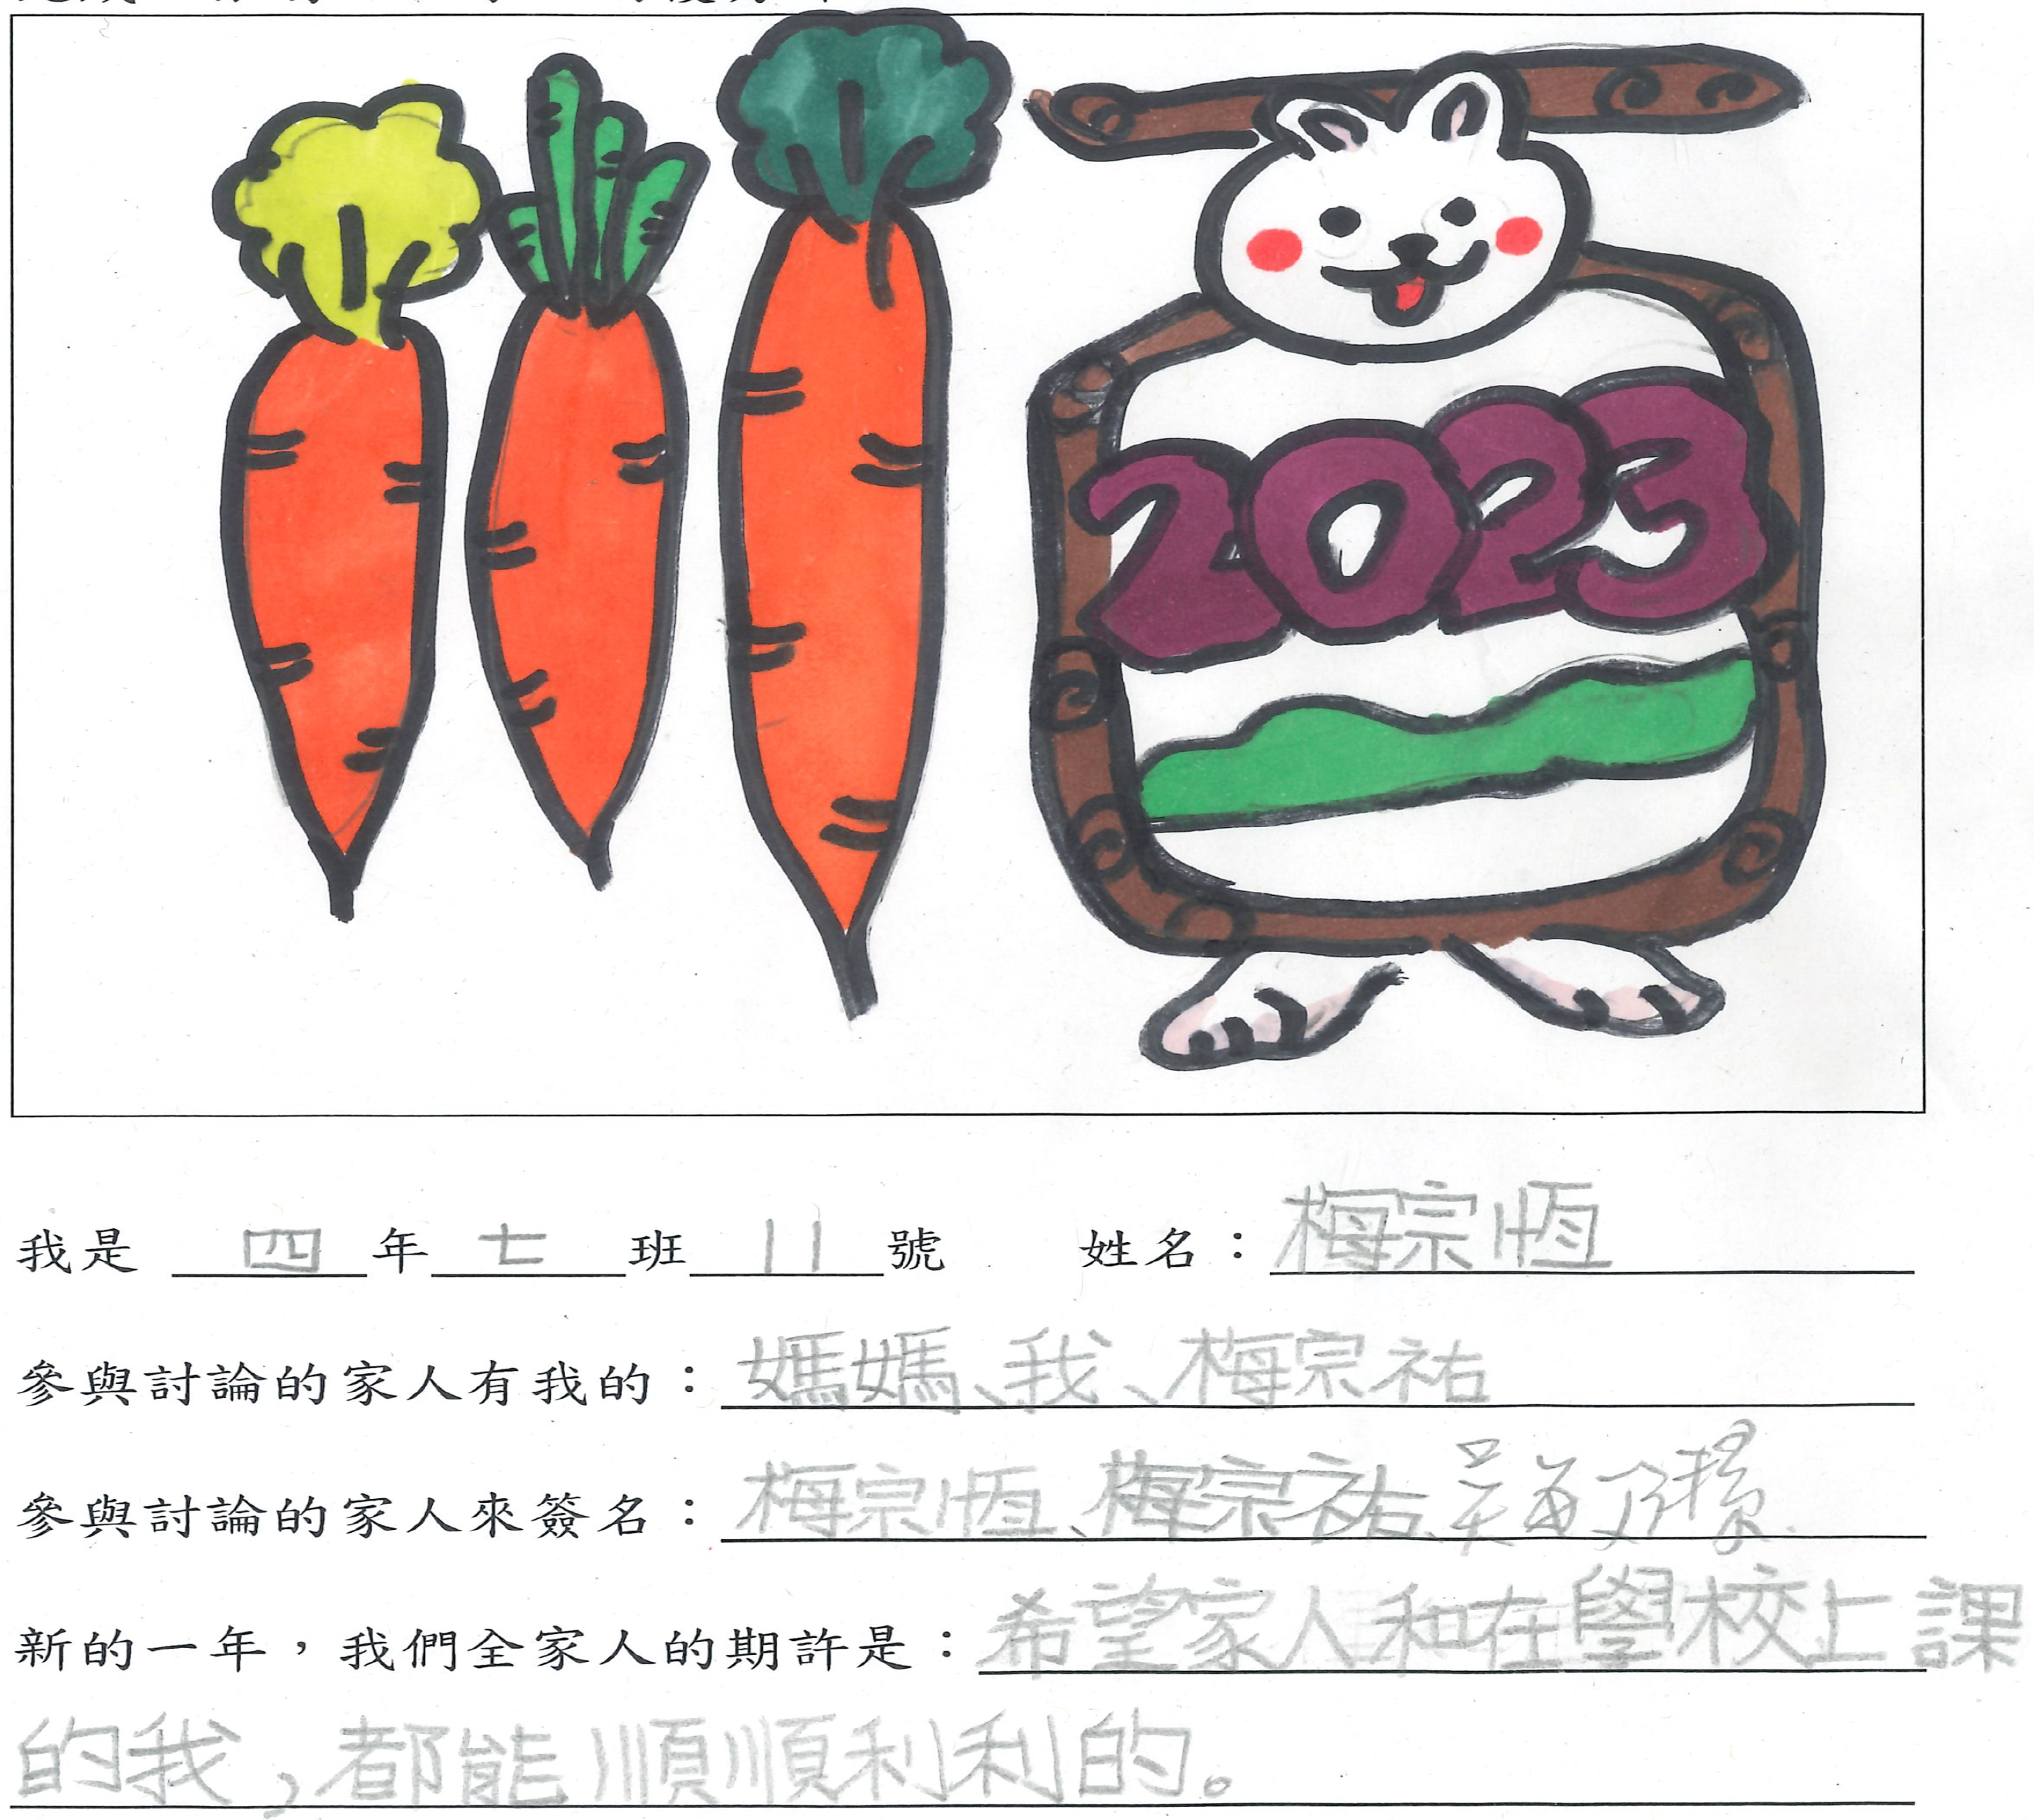 2023
我是 四 年 七 班 11 號 姓名：梅宗恆
參與討論的家人有我的：媽媽、我、梅宗祐
參與討論的家人來簽名：梅宗恆、梅宗祐、
新的一年，我們全家人的期許是：希望家人和在學校上課
的我，都能順順利利的。